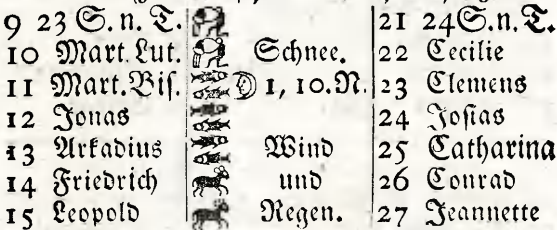 9 23 S. n. T. 21 24 S. n. T.
10 Mart. Lut. Schnee. 22 Cecilie
11 Mart. Bis. 1, 10. N. 23 Clemens
12 Jonas 24 Josias
13 Arkadius Wind 25 Catharina
14 Friedrich und 26 Conrad
15 Leopold Regen. 27 Jeannette